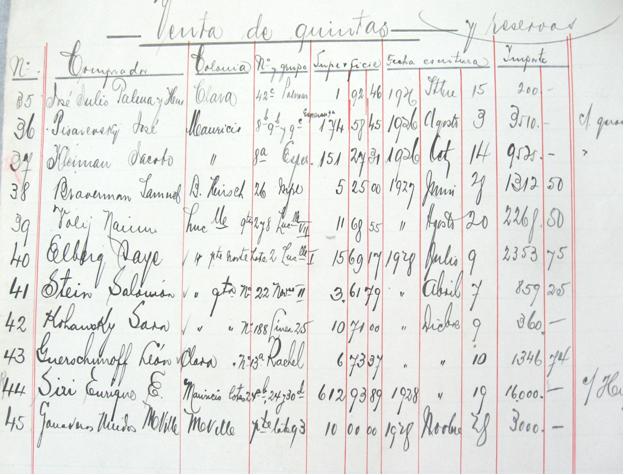 Venta de quintas y reservas
Nº Comprador Colonia Nº y grupo Superficie Fecha escritura Importe
35 José Julio Palma y Hnos Clara 42c 1 92 46 1926 15 200.-
36 José Mauricio 8b 9b y 9c Esperanza 174 58 45 1926 Agosto 3 3510.-
37 Kleiman Jacobo " 8a Esper. 151 27 31 1926 14 9525.- "
38 Braverman Samuel B. Hirsch 26 5 25 00 1927 Junio 28 1312 50
39 Naium Luc lle 278 Luc lle VII 11 68 55 " Agosto 20 2268.50
40 Elberg " pte norte Lote 2 Luc lle I 15 69 17 1928 Julio 9 2353 75
41 Stein Salomón " " Nº 22 II 3.61 79 " Abril 7 859 25
42 Kohansky Sara " " Nº 188 Linea 25 10 71 00 " Dicbre 9 360.-
43 Guerschunoff León Clara Nº 13a Rachel 6 73 37 " " 10 1346 74
44 Siri Enrique E. Mauricio lotes 24 y 30 612 93 89 1928 " 19 16,000.- c/
45 Ganaderos Unidos MVille MVille pte lote 93 10 00 00 1928 Novbre 28 3000.-